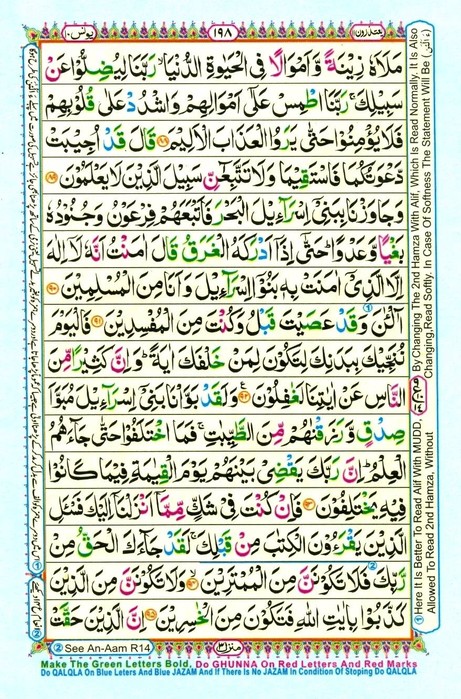 یونس ۱۰
۱۹۸
یعتذرون ۱۱
مَلَاَهٗ زِیْنَةً وَّاَمْوَالًا فِی الْحَیٰوةِ الدُّنْیَا ۙ رَبَّنَا لِیُضِلُّوْا عَنْ
سَبِیْلِكَ ۚ رَبَّنَا اطْمِسْ عَلٰۤی اَمْوَالِهِمْ وَاشْدُدْ عَلٰی قُلُوْبِهِمْ
فَلَا یُؤْمِنُوْا حَتّٰی یَرَوُا الْعَذَابَ الْاَلِیْمَ ﴿۸۸﴾ قَالَ قَدْ اُجِیْبَتْ
دَّعْوَتُكُمَا فَاسْتَقِیْمَا وَلَا تَتَّبِعٰٓنِّ سَبِیْلَ الَّذِیْنَ لَا یَعْلَمُوْنَ ﴿۸۹﴾
وَجَاوَزْنَا بِبَنِیْۤ اِسْرَآءِیْلَ الْبَحْرَ فَاَتْبَعَهُمْ فِرْعَوْنُ وَجُنُوْدُهٗ
بَغْیًا وَّعَدْوًا ؕ حَتّٰۤی اِذَاۤ اَدْرَكَهُ الْغَرَقُ ۙ قَالَ اٰمَنْتُ اَنَّهٗ لَاۤ اِلٰهَ
اِلَّا الَّذِیْۤ اٰمَنَتْ بِهٖ بَنُوْۤا اِسْرَآءِیْلَ وَاَنَا مِنَ الْمُسْلِمِیْنَ ﴿۹۰﴾
آٰلْـٰٔنَ وَقَدْ عَصَیْتَ قَبْلُ وَكُنْتَ مِنَ الْمُفْسِدِیْنَ ﴿۹۱﴾ فَالْیَوْمَ
نُنَجِّیْكَ بِبَدَنِكَ لِتَكُوْنَ لِمَنْ خَلْفَكَ اٰیَةً ؕ وَاِنَّ كَثِیْرًا مِّنَ
النَّاسِ عَنْ اٰیٰتِنَا لَغٰفِلُوْنَ ﴿۹۲﴾ وَلَقَدْ بَوَّاْنَا بَنِیْۤ اِسْرَآءِیْلَ مُبَوَّاَ
صِدْقٍ وَّرَزَقْنٰهُمْ مِّنَ الطَّیِّبٰتِ ۚ فَمَا اخْتَلَفُوْا حَتّٰی جَآءَهُمُ
الْعِلْمُ ؕ اِنَّ رَبَّكَ یَقْضِیْ بَیْنَهُمْ یَوْمَ الْقِیٰمَةِ فِیْمَا كَانُوْا
فِیْهِ یَخْتَلِفُوْنَ ﴿۹۳﴾ فَاِنْ كُنْتَ فِیْ شَكٍّ مِّمَّاۤ اَنْزَلْنَاۤ اِلَیْكَ فَسْـَٔلِ
الَّذِیْنَ یَقْرَءُوْنَ الْكِتٰبَ مِنْ قَبْلِكَ ۚ لَقَدْ جَآءَكَ الْحَقُّ مِنْ
رَّبِّكَ فَلَا تَكُوْنَنَّ مِنَ الْمُمْتَرِیْنَ ﴿۹۴﴾ وَلَا تَكُوْنَنَّ مِنَ الَّذِیْنَ
كَذَّبُوْا بِاٰیٰتِ اللّٰهِ فَتَكُوْنَ مِنَ الْخٰسِرِیْنَ ﴿۹۵﴾ اِنَّ الَّذِیْنَ حَقَّتْ
② See An-Aam R14
منزل ۳
Make The Green Letters Bold, Do GHUNNA On Red Letters And Red Marks
Do QALQLA On Blue Leters And Blue JAZAM And If There Is No JAZAM In Condition Of Stoping Do QALQLA
① Here It Is Better To Read Alif With MUDD, By Changing The 2nd Hamza With Alif, Which Is Read Normally. It Is Also
Allowed To Read 2nd Hamza, Without Changing,Read Softly. In Case Of Softness The Statement Will Be